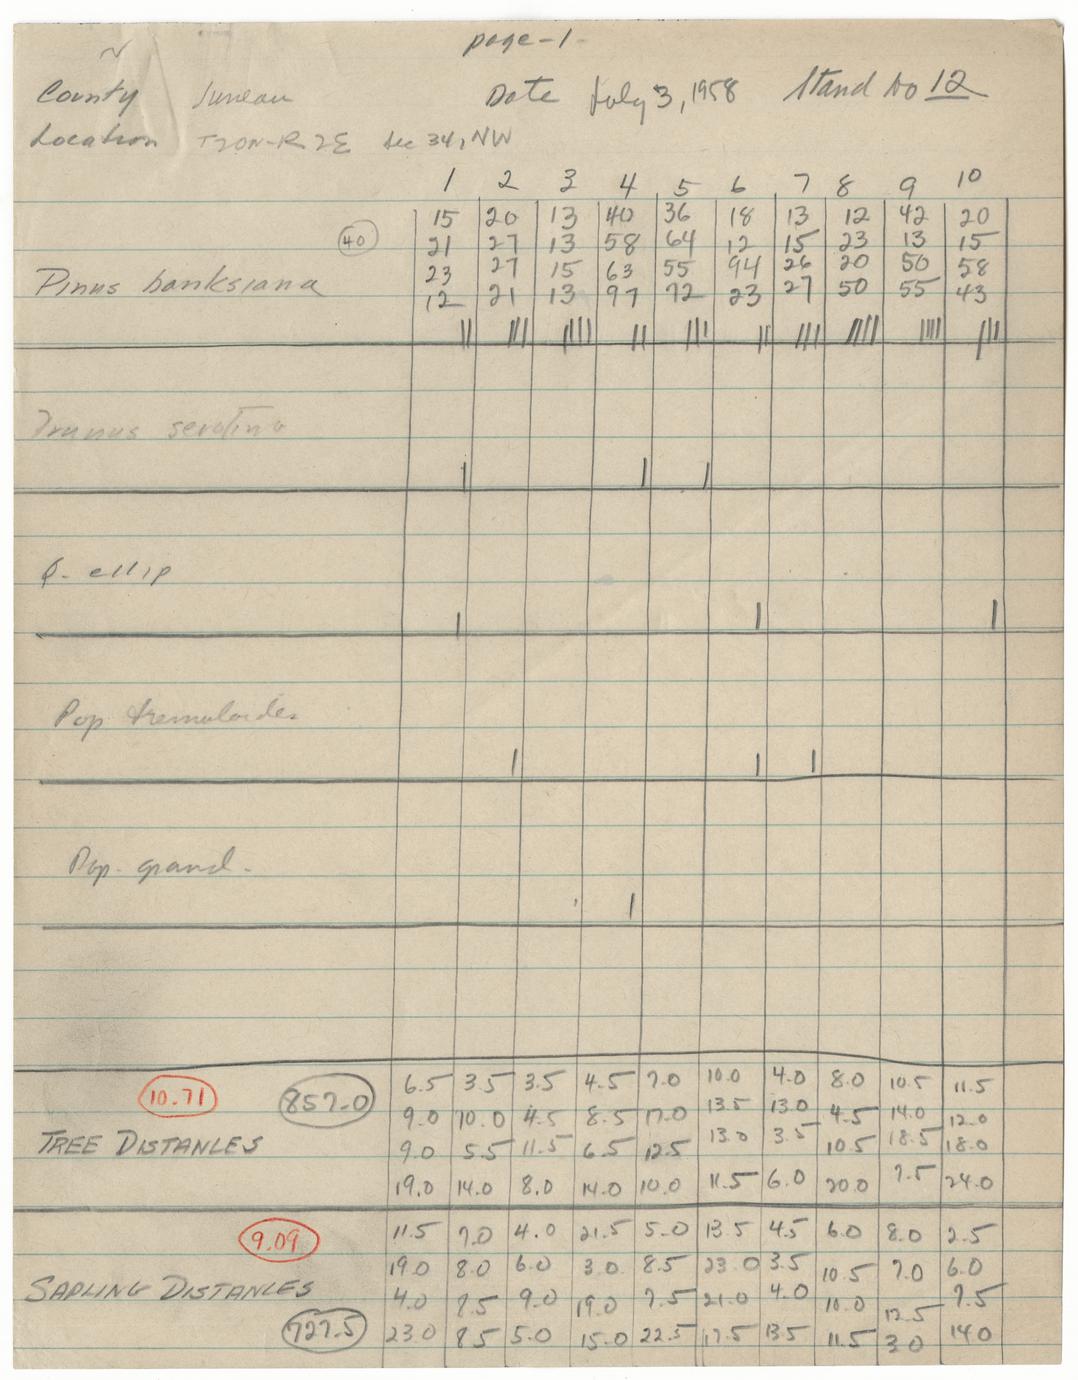 page-1-
County Juneau Date July 3, 1958 Stand No 12
Location T20N-R2E Sec 34, NW
1 2 3 4 5 6 7 8 9 10
15 20 13 40 36 18 13 12 42 20
40 21 27 13 58 64 12 15 23 13 15
23 27 15 63 55 94 26 20 50 58
Pinus banksiana 12 21 13 97 72 23 27 50 55 43
|| ||| |||| || ||| || ||| |||| |||| |||
Prunus serotina
| | |
Q. ellip
| | |
Pop tremuloides
| | |
Pop. grand.
|
6.5 3.5 3.5 4.5 7.0 10.0 4.0 8.0 10.5 11.5
10.71 857.0 9.0 10.0 4.5 8.5 17.0 13.5 13.0 4.5 14.0 12.0
TREE DISTANCES 9.0 5.5 11.5 6.5 12.5 13.0 3.5 10.5 18.5 18.0
19.0 14.0 8.0 14.0 10.0 11.5 6.0 20.0 7.5 24.0
11.5 7.0 4.0 21.5 5.0 13.5 4.5 6.0 8.0 2.5
9.09 19.0 8.0 6.0 3.0 8.5 23.0 3.5 10.5 7.0 6.0
SAPLING DISTANCES 4.0 7.5 9.0 19.0 7.5 21.0 4.0 10.0 12.5 7.5
727.5 23.0 8.5 5.0 15.0 22.5 17.5 13.5 11.5 3.0 14.0